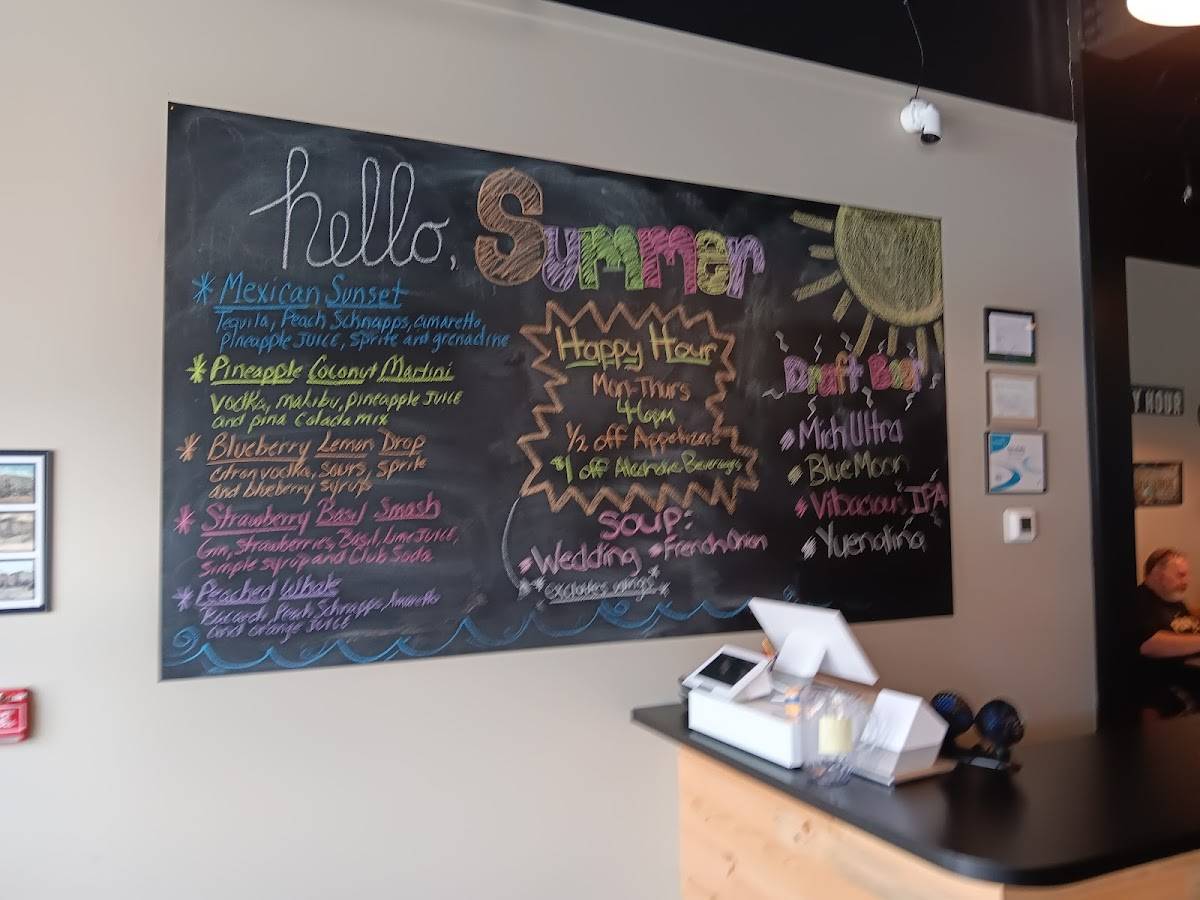 hello, Summer
* Mexican Sunset
Tequila, Peach Schnapps, amaretto,
Pineapple Juice, Sprite and grenadine
* Pineapple Coconut Martini
Vodka, malibu, pineapple Juice
and pina Colada mix
* Blueberry Lemon Drop
citron vodka, sours, sprite
and blueberry syrup
* Strawberry Basil Smash
Gin, strawberries, Basil, lime JUICE,
Simple syrup and Club Soda
* Peached Whale
Bacardi, Peach Schnapps, Amaretto
and orange JUICE
Happy Hour
Mon-Thurs
4-6pm
1/2 off Appetizers
$1 off Alcoholic Beverages
Soup:
* Wedding * French Onion
** excludes wings **
Draft Beer
* Mich Ultra
* Blue Moon
* Vibacious IPA
* Yuengling
Y HOUR